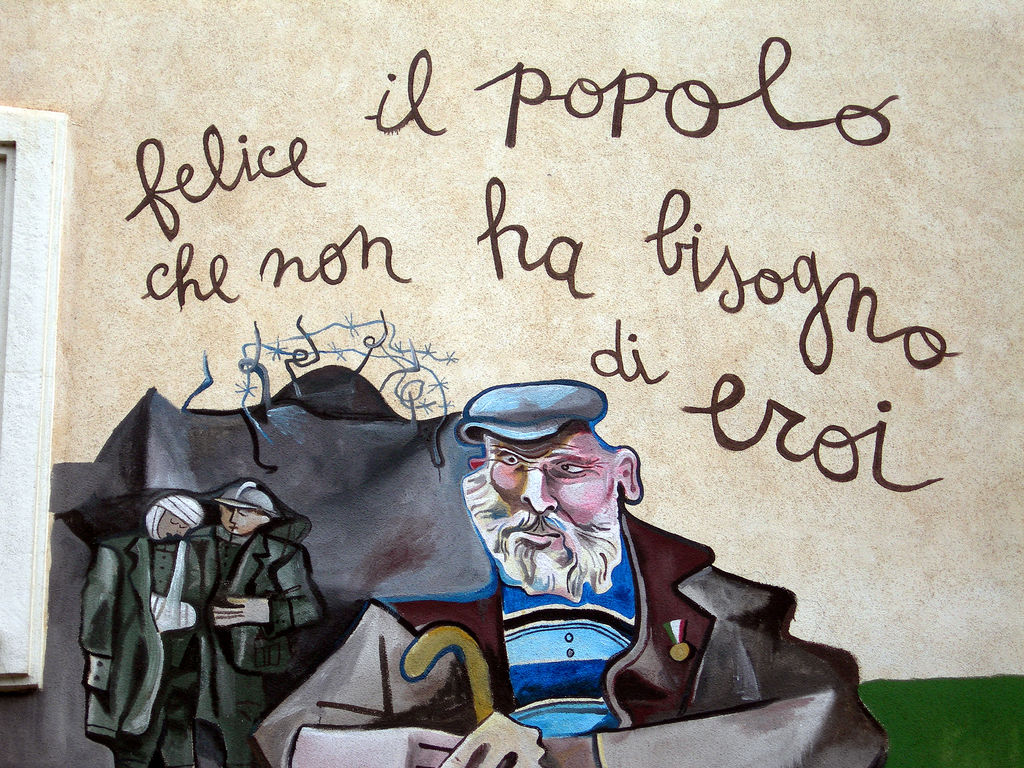 felice il popolo
che non ha bisogno
di eroi